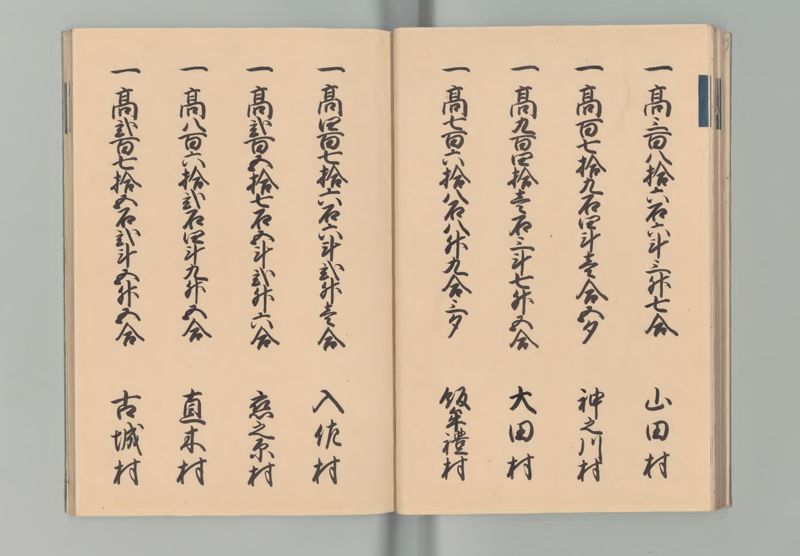 一高三百八拾六石六斗三升七合 山田村
一高百七拾九石四斗壱合五夕 神之川村
一高九百四拾壱石三斗七升五合 大田村
一高七百六拾八石八升九合三夕 飯牟禮村
一高四百七拾六石六斗弐升壱合 入佐村
一高弐百五拾七石五斗弐升六合 恋之原村
一高八百六拾弐石四斗九升五合 直木村
一高弐百七拾五石弐斗五升五合 古城村